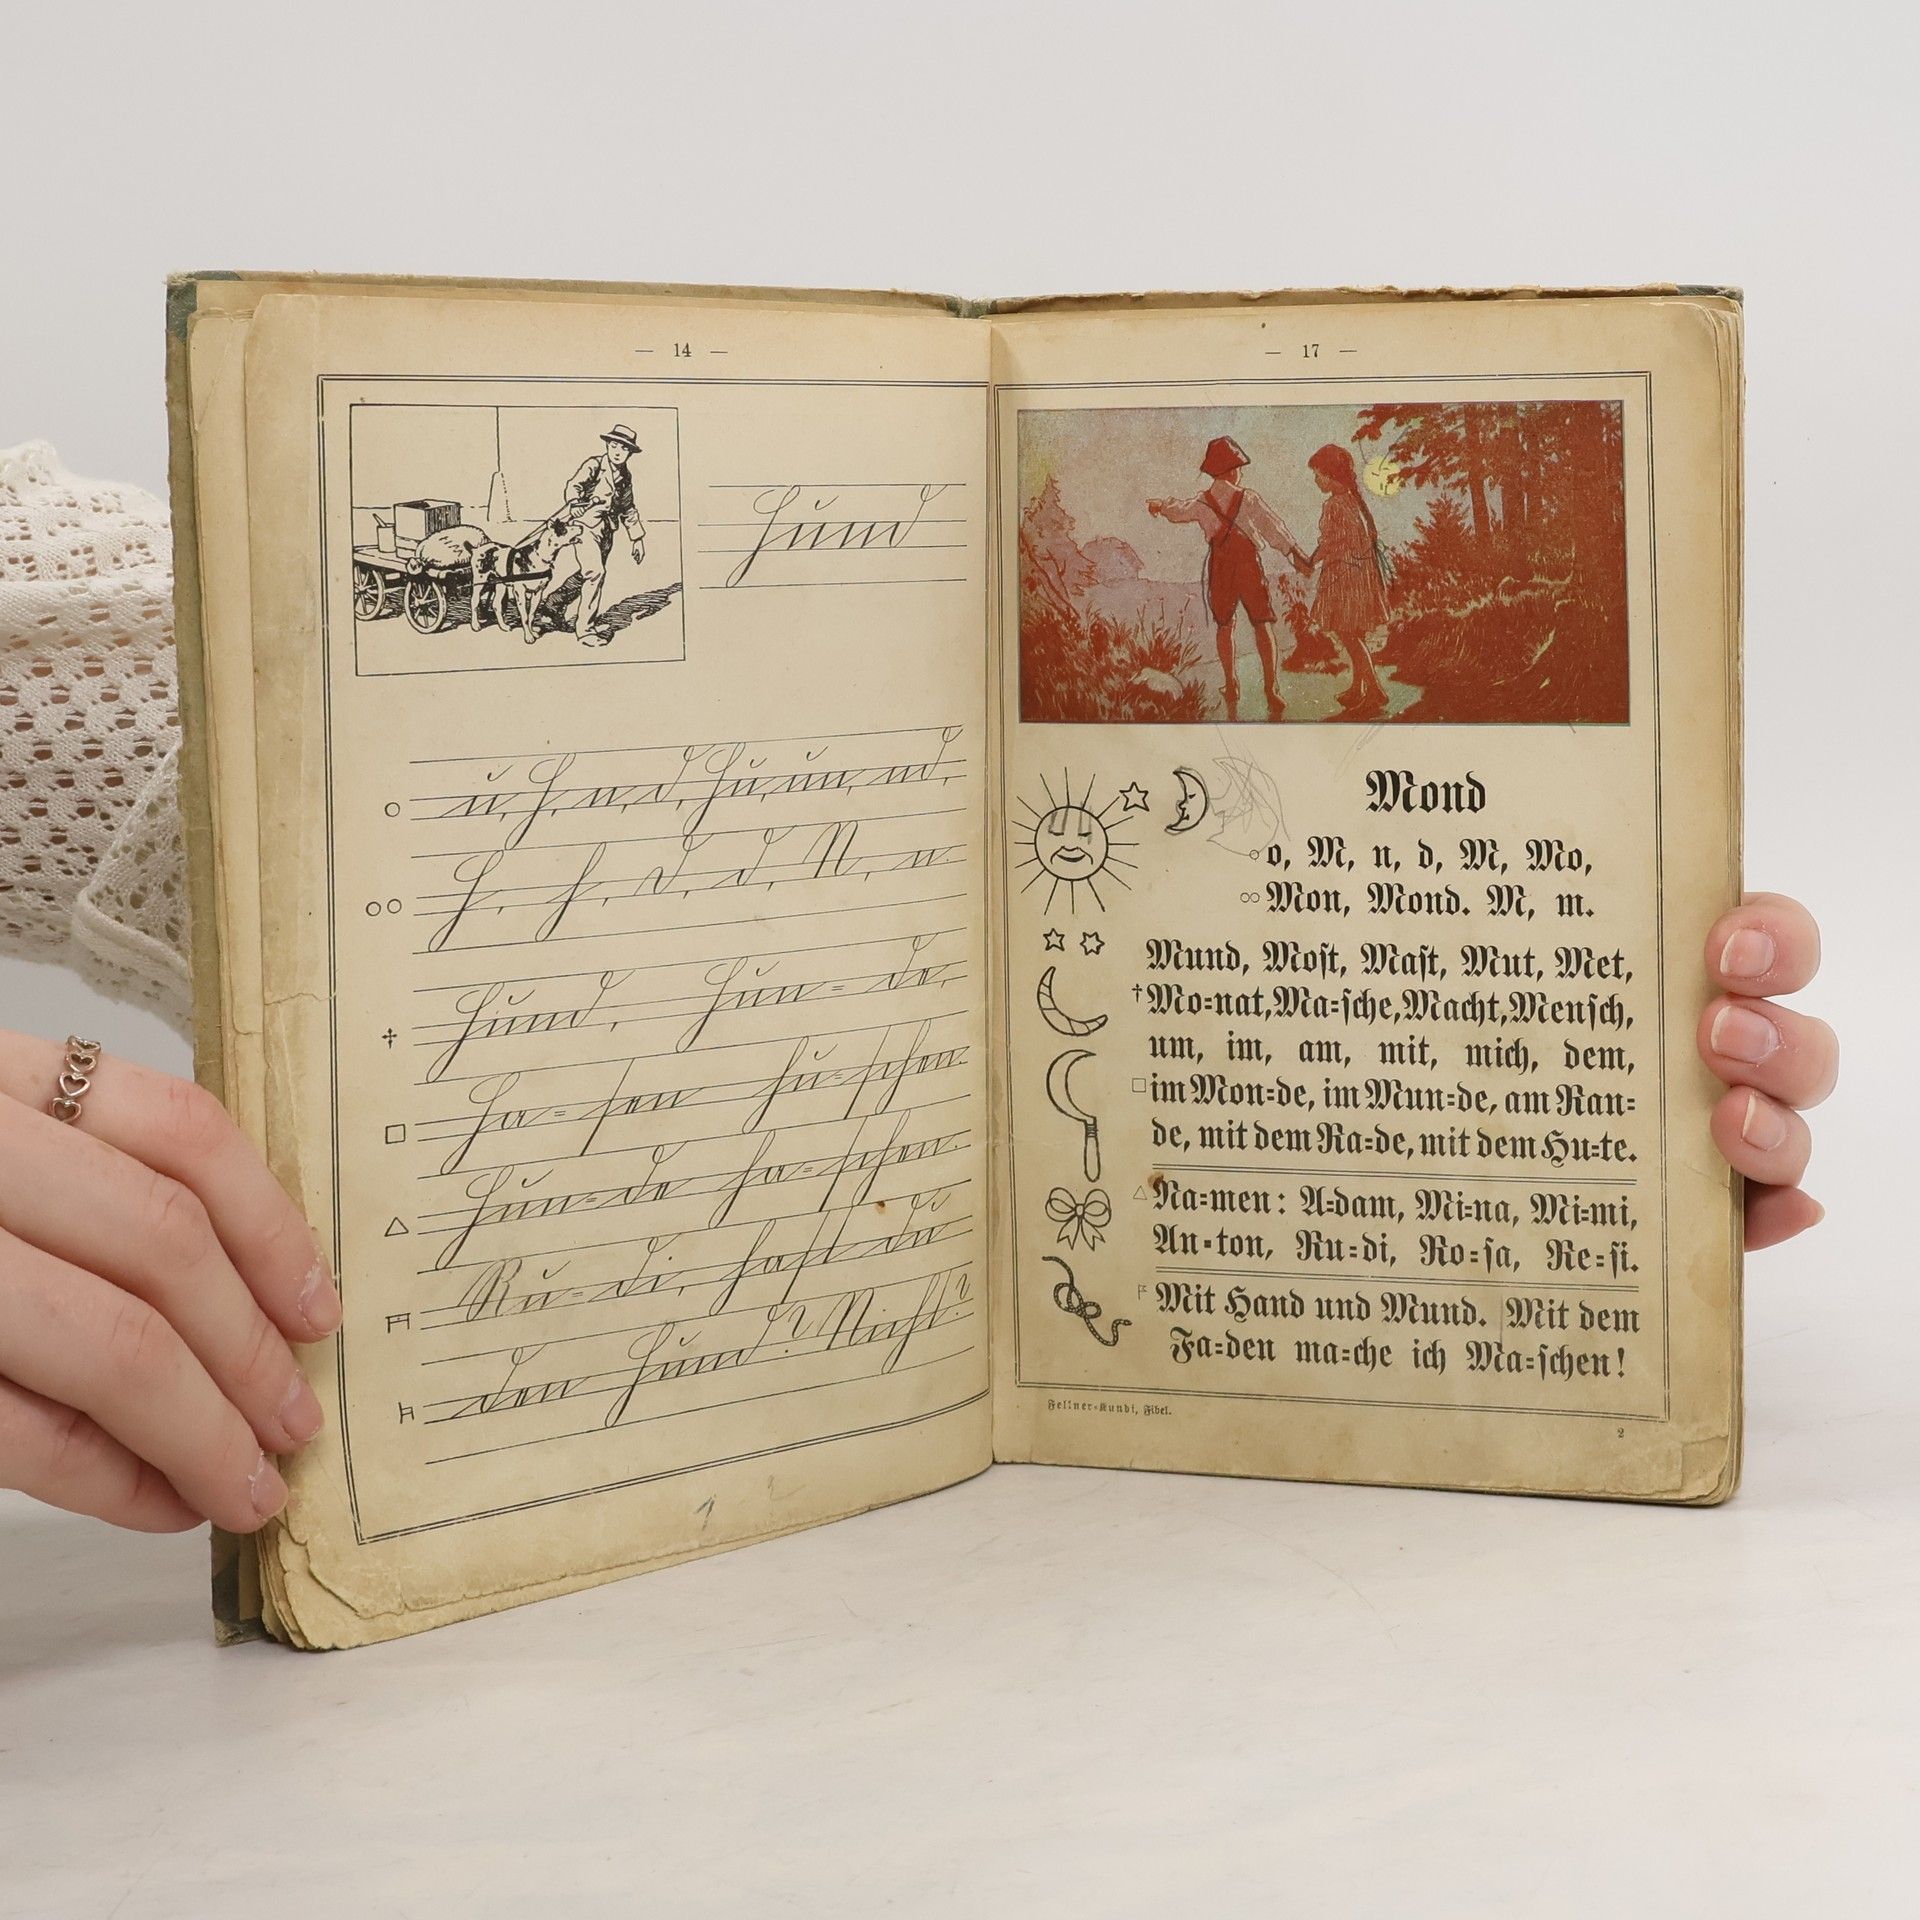 — 14 —
Hund
u, H, n, d, Hu, un, nd,
H, h, D, d, N, n.
Hund, Hun= de,
Ha= sen hu=schen.
Hun=de ha=schen.
Ru=di, hast du
den Hund? Nicht?
1 2
— 17 —
Mond
o, M, n, d, M, Mo,
Mon, Mond. M, m.
Mund, Moſt, Maſt, Mut, Met,
†Mo=nat, Ma=ſche, Macht, Menſch,
um, im, am, mit, mich, dem,
im Mon=de, im Mun=de, am Ran=
de, mit dem Ra=de, mit dem Hu=te.
Na=men: A=dam, Mi=na, Mi=mi,
An=ton, Ru=di, Ro=ſa, Re=ſi.
Mit Hand und Mund. Mit dem
Fa=den ma=che ich Ma=ſchen!
Fellner=Kundi, Fibel.
2